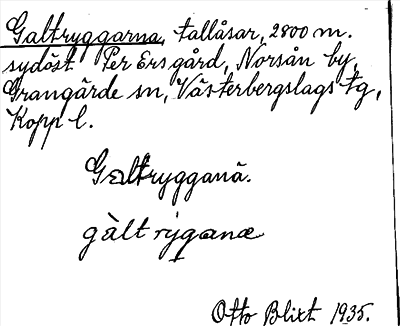 Galtryggarna, tallåsar, 2800 m.
sydöst Per Ers gård, Norsån by,
Grangärde sn, Västerbergslags tg,
Kopp l.
Galtrygganä.
gàlt rýganæ
Otto Blixt 1935.